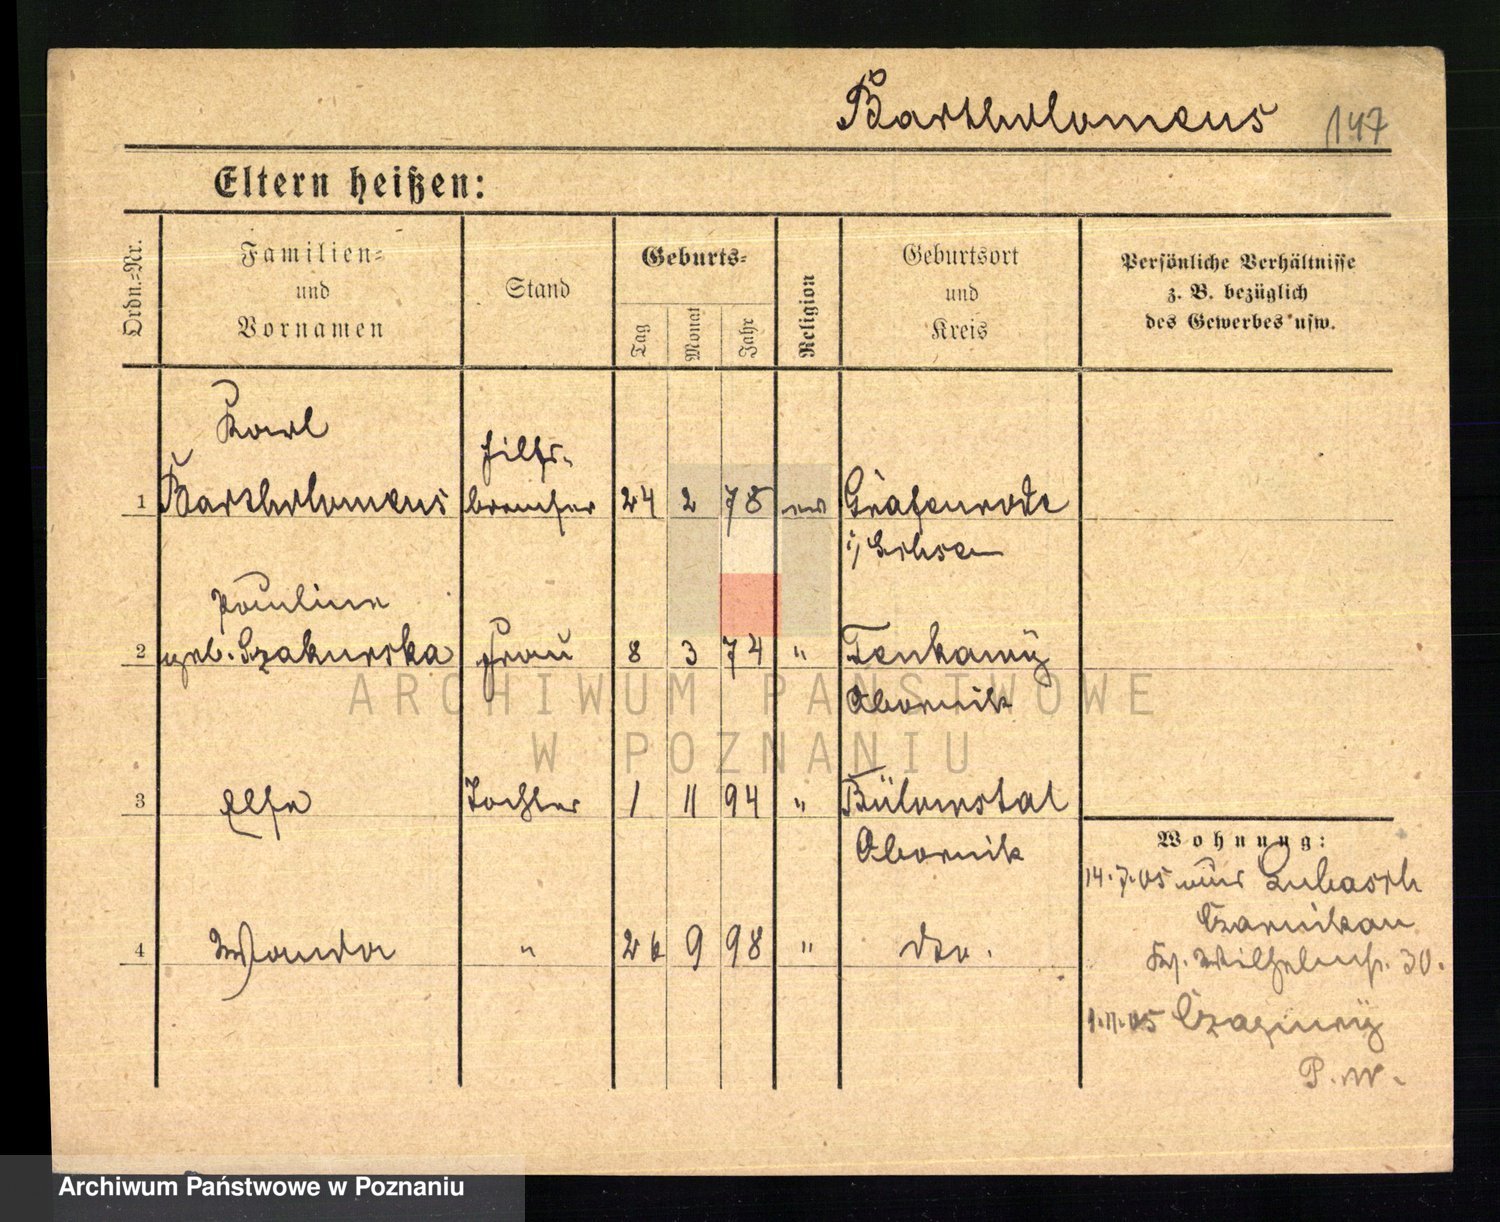 Bartholomeus 147
Eltern heißen:
Ordn.-Nr.
Familien-
und
Vornamen
Stand
Geburts-
Tag
Monat
Jahr
Religion
Geburtsort
und
Kreis
Persönliche Verhältnisse
z. B. bezüglich
des Gewerbes usw.
Karl
Hilfs-
1 Bartholomeus bremser 24 2 78 ev Gräfenrode
i/ Sachsen
Pauline
2 geb. Szakurska Frau 8 3 74 "
Obornik
3 Else Tochter 1 11 94 " Bülowstal
Obornik
Wohnung:
14.7.05 aus Lubasch
Czarnikau
4 Wanda " 26 9 98 " dto.
Wilhelmstr. 30.
1.11.05
P. W.
ARCHIWUM PAŃSTWOWE
W POZNANIU
Archiwum Państwowe w Poznaniu